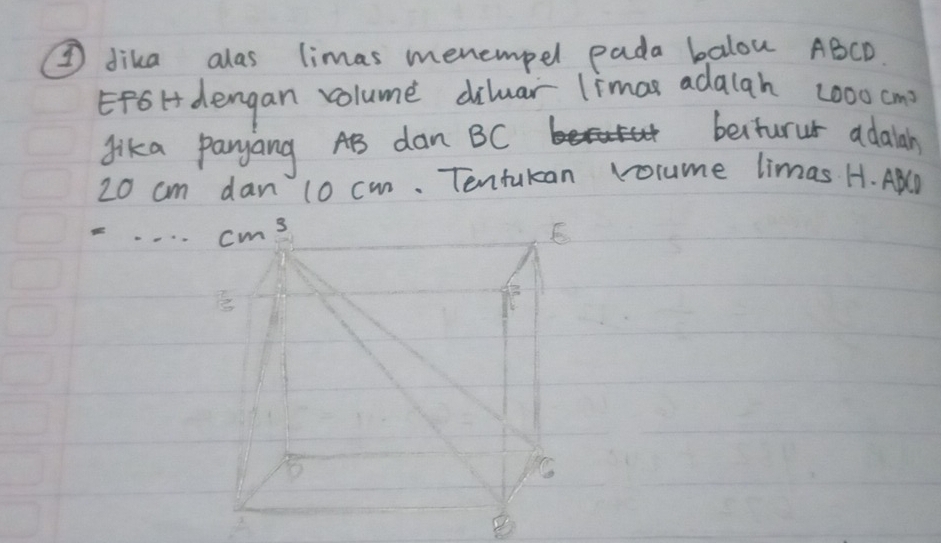 1 Jika alas limas menempel pada balou ABCD.
EFGH dengan volume diluar limas adalah 2000 cm³
Jika panjang AB dan BC berturut adalah
20 cm dan 10 cm. Tentukan volume limas H. ABCD
= .... cm³
H G
E F
D C
A B